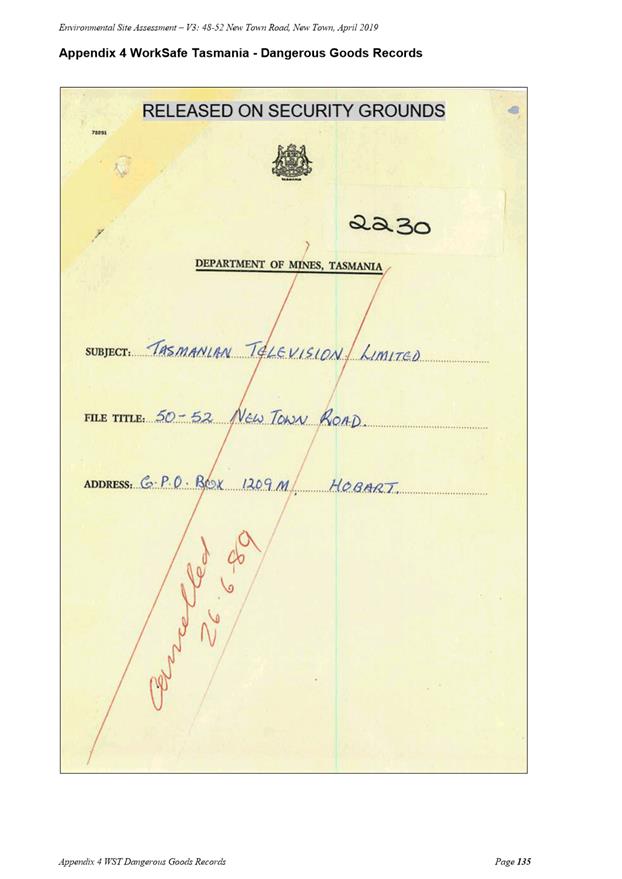 Environmental Site Assessment – V3: 48-52 New Town Road, New Town, April 2019
Appendix 4 WorkSafe Tasmania - Dangerous Goods Records
RELEASED ON SECURITY GROUNDS
TASMANIA
2230
DEPARTMENT OF MINES, TASMANIA
SUBJECT: TASMANIAN TELEVISION LIMITED
FILE TITLE: 50-52 NEW TOWN ROAD.
ADDRESS: G.P.O. BOX 1209M, HOBART.
Cancelled
26.6.89
Appendix 4 WST Dangerous Goods Records Page 135